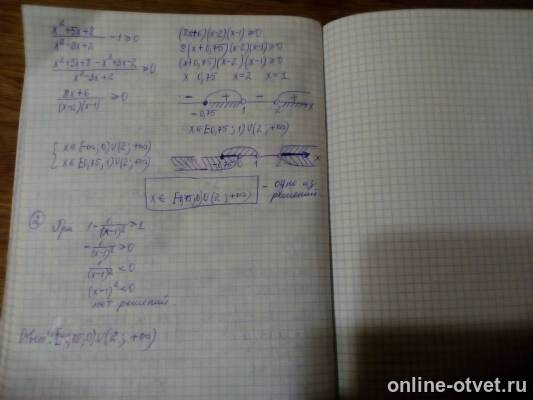 x²+5x+8 / x²-3x+2 - 1 ≥ 0
x²+5x+8 - x²+3x-2 / x²-3x+2 ≥ 0
8x+6 / (x-2)(x-1) ≥ 0
(8x+6)(x-2)(x-1) ≥ 0
8(x+0,75)(x-2)(x-1) ≥ 0
(x+0,75)(x-2)(x-1) ≥ 0
x 0,75 x=2 x=1
- + - + x
-0,75 1 2
x∈[-0,75; 1)∪(2; +∞)
{ x∈(-∞; 0)∪(2; +∞)
x∈[-0,75; 1)∪(2; +∞)
-0,75 0 1 2 x
x∈ [-0,75; 0)∪(2; +∞) - одно из
решений.
② При 1 - 1/(x-1)² > 1
- 1/(x-1)² > 0
1/(x-1)² < 0
(x-1)² < 0
нет решений
Ответ: [-0,75; 0)∪(2; +∞)
online-otvet.ru